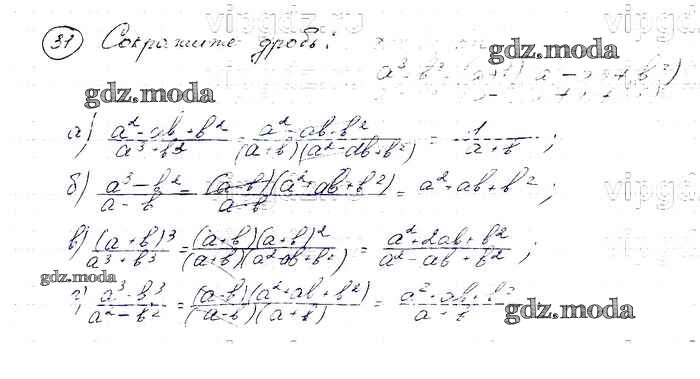 vipgdz.ru
31 Сократите дробь:
gdz.moda
gdz.moda
а) a² - ab + b² / a³ + b² = a² - ab + b² / (a + b)(a² - ab + b²) = 1 / a + b ;
б) a³ - b² / a - b = (a - b)(a² + ab + b²) / a - b = a² + ab + b² ;
в) (a + b)³ / a³ + b³ = (a + b)(a + b)² / (a + b)(a² - ab + b²) = a² + 2ab + b² / a² - ab + b² ;
gdz.moda
г) a³ - b³ / a² - b² = (a - b)(a² + ab + b²) / (a - b)(a + b) = a² + ab + b² / a + b
gdz.moda